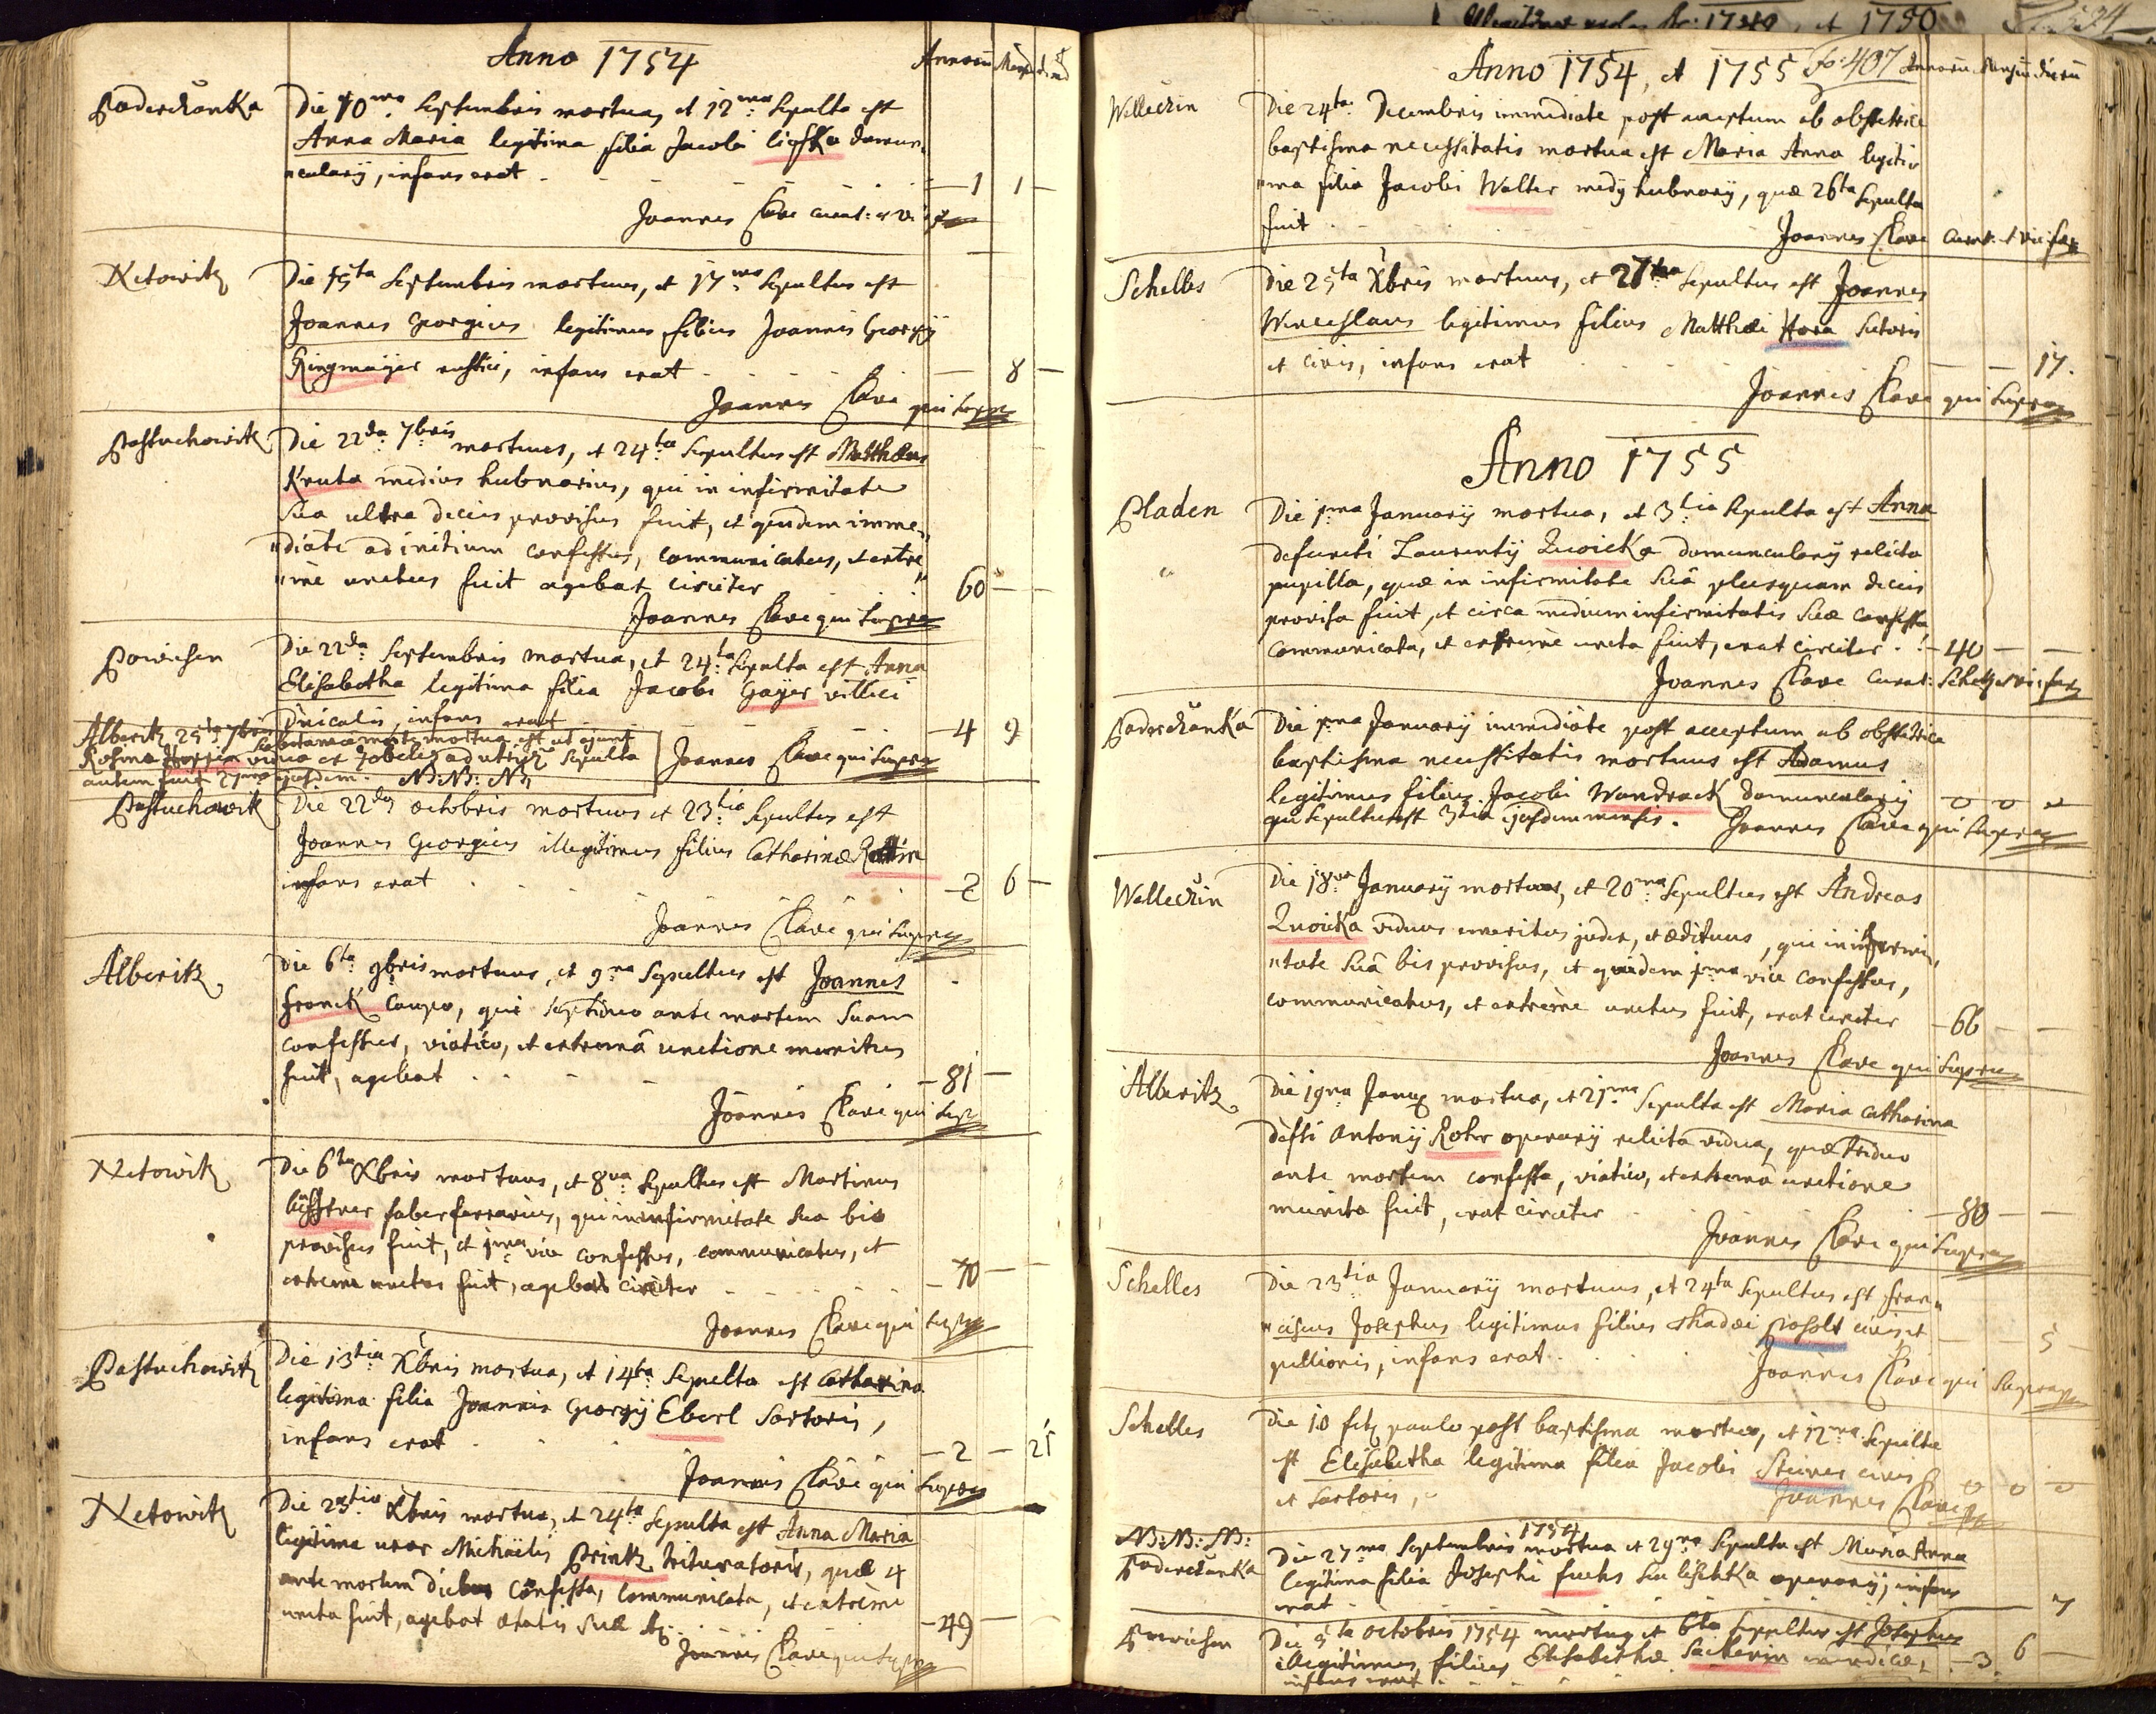 Anno 1754
Annorū Mens: dierū
Poderschanka
Die 10ma Septembris mortua, et 12ma Sepulta est
Anna Maria legitima filia Jacobi Lischka domun„
„culary, infans erat — 1 1 —
Joannes Clave curat: et
Netowitz
Die 15ta Septembris mortuus, et 17ma Sepultus est
Joannes Georgius legitimus filius Joannis Georgÿ
Ringmaÿer rustici, infans erat — 8 —
Joannes Clave qui supra
Pastuchowitz
Die 22da 7bris mortuus, et 24ta Sepultus est Matthæus
Kruta medius hubnarius, qui in infirmitate
Sua ultra decies provisus fuit, et quidem imme„
„diate ad initium confessus, communicatus, et extre„
„me unctus fuit agebat circiter 60 — —
Joannes Clave qui supra
Powichen
Die 22da Septembris mortua, et 24ta Sepulta est Anna
Elisabetha legitima filia Jacobi Gaÿer villici
infans erat — 4 9
Joannes Clave qui supra
Alberitz 25ta 7bris mortua est ut ajunt
Rosina vidua ex Zobeles Sepulta
autem fuit 27ma ejusdem. NB: NB: NB
Pastuchowitz
Die 22da octobris mortuus et 23tia Sepultus est
Joannes Georgius illegitimus filius Catharinæ
infans erat — 2 6 —
Joannes Clave qui supra
Alberitz
Die 6ta 9bris mortuus, et 9na Sepultus est Joannes
Franck caupo, qui septiduo ante mortem Suam
confessus, viatico, et extremâ unctione munitus
fuit, agebat — 81 —
Joannes Clave qui sup
Netowitz
Die 6ta Xbris mortuus, et 8va Sepultus est Martinus
faber ferrarius, qui in infirmitate sua bis
provisus fuit, et 1ma vice confessus, communicatus, et
extreme unctus fuit, agebat circiter — 70 — —
Joannes Clave qui supra
Pastuchowitz
Die 13tia Xbris mortua, et 14ta Sepulta est Catharina
legitima filia Joannis Georgÿ Eberl Sartoris,
infans erat — 2 — 21
Joannes Clave qui supra
Netowitz
Die 23tia Xbris mortua, et 24ta Sepulta est Anna Maria
legitima uxor Michaëlis Prink trituratoris, quæ 4
ante mortem diebus confessa, communicata, et extreme
uncta fuit, agebat ætatis suæ — 49 —
Joannes Clave qui supra
1740, et 1750
Anno 1754, et 1755 fo: 407 Annorū Mensiū dierū
Welletzin
Die 24ta Decembris immediate post acceptum ab obstetrice
baptisma necessitatis mortua est Maria Anna legiti„
„ma filia Jacobi Walter medÿ hubnarÿ, quæ 26ta Sepulta
fuit
Joannes Clave curat:
Schelles
Die 25ta Xbris mortuus, et 27ma Sepultus est Joannes
Wenceslaus legitimus filius Matthæi Hora Sutoris
et civis, infans erat — — 17.
Joannes Clave qui supra
Anno 1755
Pladen
Die 1ma Januarÿ mortua, et 3tia Sepulta est Anna
defuncti Laurentÿ Zwoicka domuncularÿ relicta
pupilla, quæ in infirmitate Suâ plusquam decies
provisa fuit, et circa medium infirmitatis Suæ confessa,
communicata, et extreme uncta fuit, erat circiter — 40 — —
Joannes Clave Curat:
Poderschanka
Die 1ma Januarÿ immediate post acceptum ab obstetrice
baptisma necessitatis mortuus est Adamus
legitimus filius Jacobi Wondrack domuncularÿ 0 0 0
qui Sepultus est 3tia ejusdem mensis. Joannes Clave qui supra
Welletzin
Die 18va Januarÿ mortuus, et 20ma Sepultus est Andreas
Zwoicka viduus emeritus judex, et ædituus, qui in infirmi„
„tate Suâ bis provisus, et quidem 1ma vice confessus,
communicatus, et extreme unctus fuit, erat circiter — 66 — —
Joannes Clave qui supra
Alberitz
Die 19na Janu mortua, et 21ma Sepulta est Maria Catharina
defti Antonÿ Rohr operarÿ relicta vidua, quæ triduo
ante mortem confessa, viatico, et extremâ unctione
munita fuit, erat circiter — 80 — —
Joannes Clave qui supra
Schelles
Die 23tia Januarÿ mortuus, et 24ta Sepultus est Fran„
„ciscus Josephus legitimus filius Thadæi Posselt civis et
pellionis, infans erat — — 5 —
Joannes Clave qui supra
Schelles
Die 10 paulo post baptisma mortua, et 12ma Sepulta
est Elisabetha legitima filia Jacobi Steiner civis
et Sartoris, 0 0 0
Joannes Clave
NB: NB: NB:
Poderschanka
Die 27ma Septembris 1754 mortua et 29na Sepulta est Maria Anna
legitima filia Josephi Fuchs seu Lischka operarÿ, infans
erat 7
Powichen
Die 5ta octobris 1754 mortuus et 6ta Sepultus est Josephus
illegitimus filius Elisabethæ Sackerin — 3 6 —
infans erat